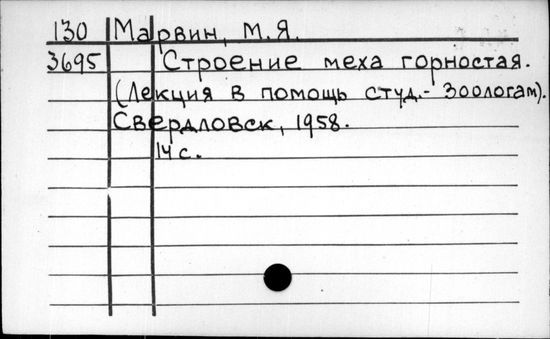 130 Марвин, М.Я.
3695 Строение меха горностая.
(Лекция в помощь студ.- зоологам).
Свердловск, 1958.
14 с.